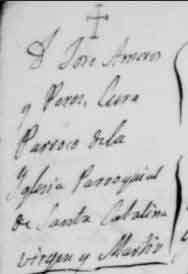 D. Jose Amoros
y Peres, Cura
Parroco de la
Iglesia Parroquial
de Santa Catalina
virgen y Martir